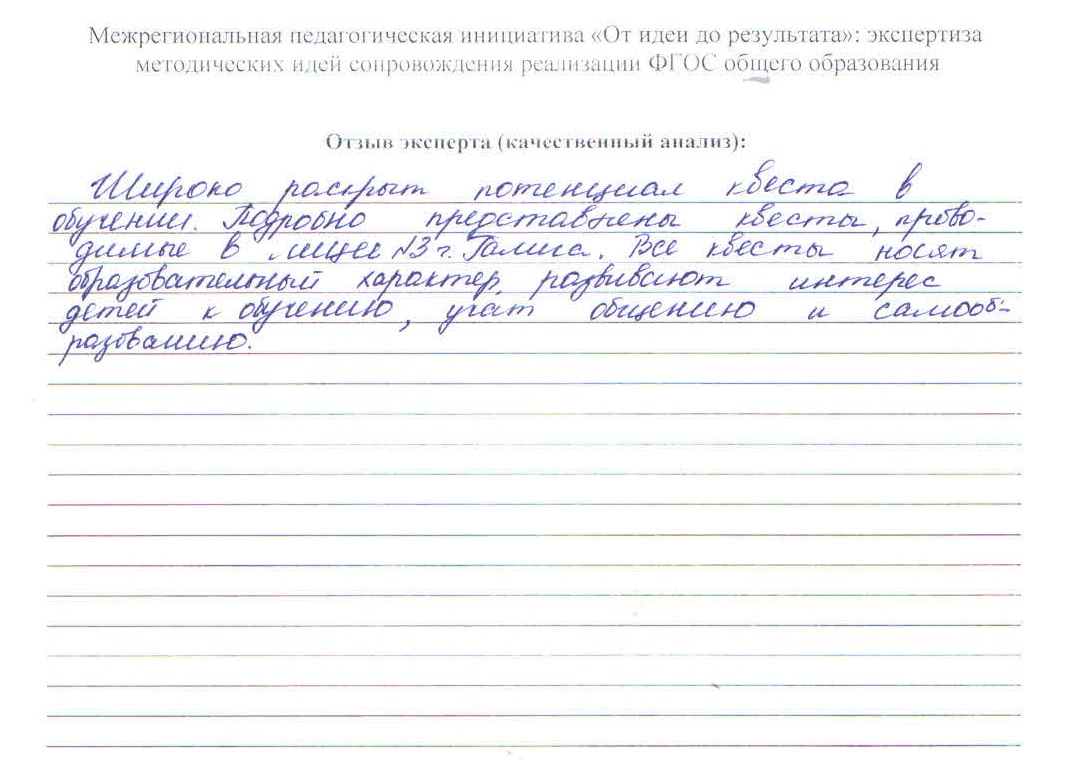 Межрегиональная педагогическая инициатива «От идеи до результата»: экспертиза
методических идей сопровождения реализации ФГОС общего образования
Отзыв эксперта (качественный анализ):
Широко раскрыт потенциал квеста в
обучении. Подробно представлены квесты, прово-
димые в лицее №3 г. Галича. Все квесты носят
образовательный характер, развивают интерес
детей к обучению, учат общению и самооб-
разованию.